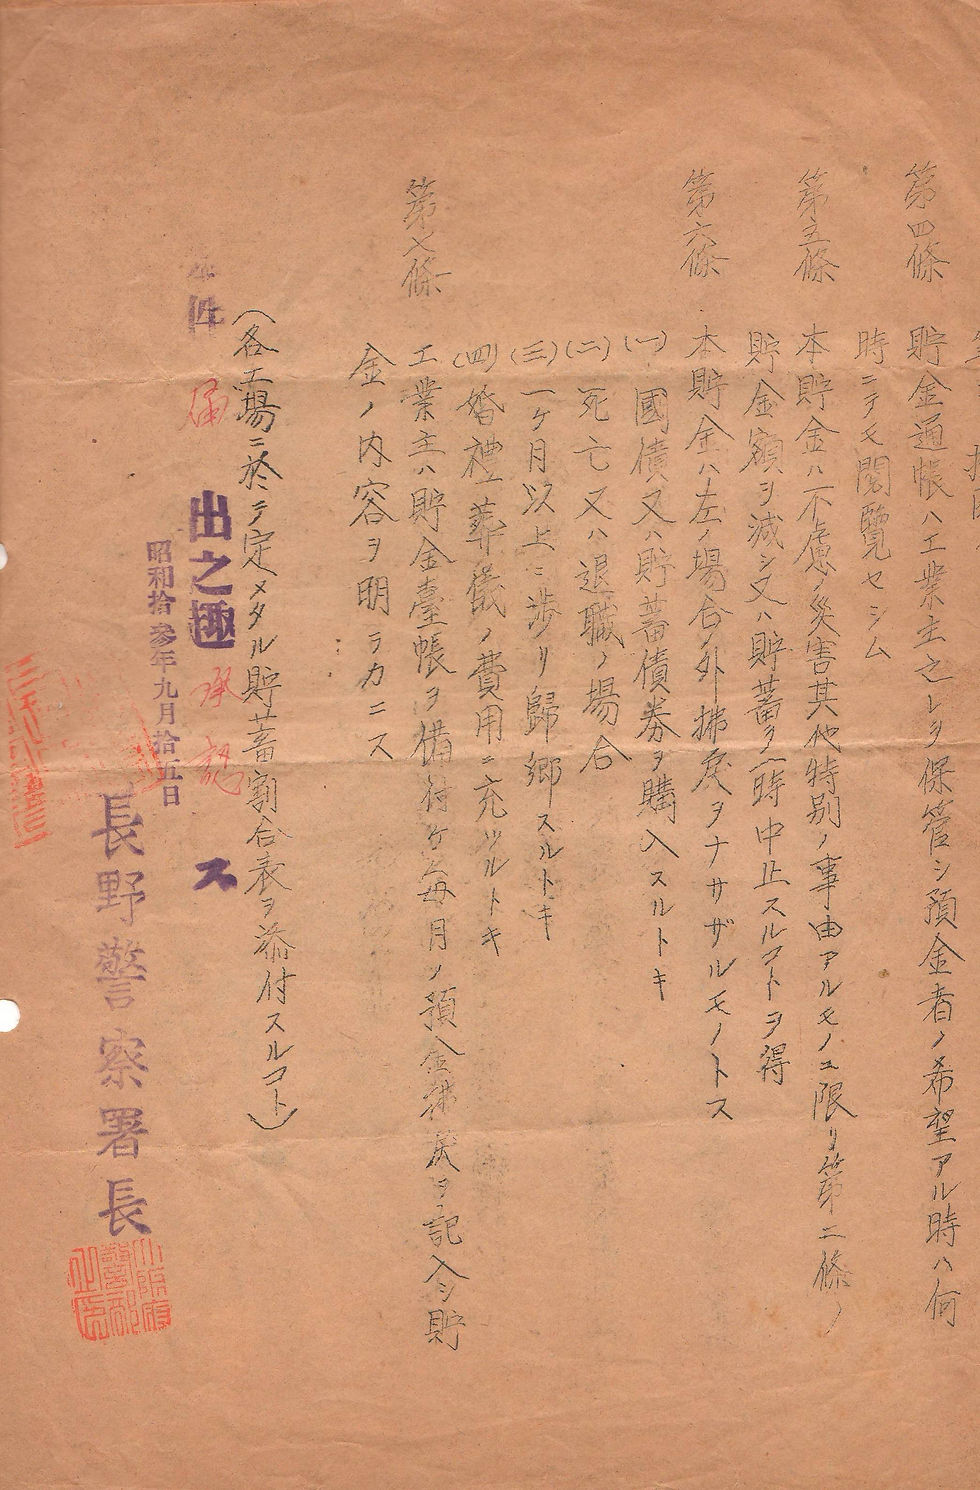 第四條 貯金通帳ハ工業主之レヲ保管シ預金者ノ希望アル時ハ何
時ニテモ閲覽セシム
第五條 本貯金ハ不慮ノ災害其他特別ノ事由アルモノニ限リ第二條ノ
貯金額ヲ減シ又ハ貯蓄ヲ一時中止スルコトヲ得
第六條 本貯金ハ左ノ場合ノ外拂戾ヲナサザルモノトス
(一) 國債又ハ貯蓄債券ヲ購入スルトキ
(二) 死亡又ハ退職ノ場合
(三) 一ケ月以上ニ渉リ歸鄉スルトキ
(四) 婚禮葬儀ノ費用ニ充ツルトキ
第七條 工業主ハ貯金臺帳ヲ備付ケ毎月ノ預金拂戾ヲ記入シ貯
金ノ内容ヲ明ラカニス
(各工場ニ於テ定メタル貯蓄割合表ヲ添付スルコト)
件 届出之趣承認ス
昭和拾參年九月拾五日
長野警察署長